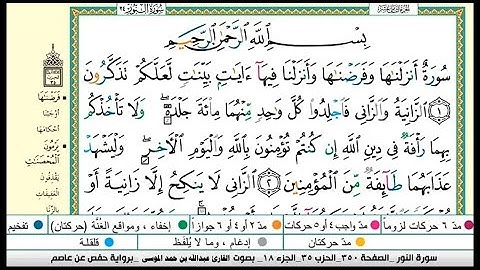 سُورَةُ النُّورِ ٢٤
بِسْمِ اللَّهِ الرَّحْمَٰنِ الرَّحِيمِ
سُورَةٌ أَنزَلْنَٰهَا وَفَرَضْنَٰهَا وَأَنزَلْنَا فِيهَآ ءَايَٰتٍۭ بَيِّنَٰتٍ لَّعَلَّكُمْ تَذَكَّرُونَ
﴿١﴾ ٱلزَّانِيَةُ وَٱلزَّانِى فَٱجْلِدُوا۟ كُلَّ وَٰحِدٍ مِّنْهُمَا مِا۟ئَةَ جَلْدَةٍ ۖ وَلَا تَأْخُذْكُم
بِهِمَا رَأْفَةٌ فِى دِينِ ٱللَّهِ إِن كُنتُمْ تُؤْمِنُونَ بِٱللَّهِ وَٱلْيَوْمِ ٱلْءَاخِرِ ۖ وَلْيَشْهَدْ
عَذَابَهُمَا طَآئِفَةٌ مِّنَ ٱلْمُؤْمِنِينَ ﴿٢﴾ ٱلزَّانِى لَا يَنكِحُ إِلَّا زَانِيَةً أَوْ
فَرَضْنَٰهَا
أوجبنا
أحكامها
يَرْمُونَ
ٱلْمُحْصَنَٰتِ
يقذفون
العفيفات
بالزنا
مدّ ٦ حركات لزوماً مدّ واجب ٤ أو ٥ حركات مدّ ٢ أو ٤ أو ٦ جوازاً إخفاء ، ومواقع الغُنَّة (حركتان) تفخيم
مدّ حركتان إدغام ، وما لا يُلفَظ قلقلة
سورة النور _ الصفحة ٣٥٠ _ الحزب ٣٥ _ الجزء ١٨ _ بصوت القارئ عبدالله بن حمد الموسى _ برواية حفص عن عاصم